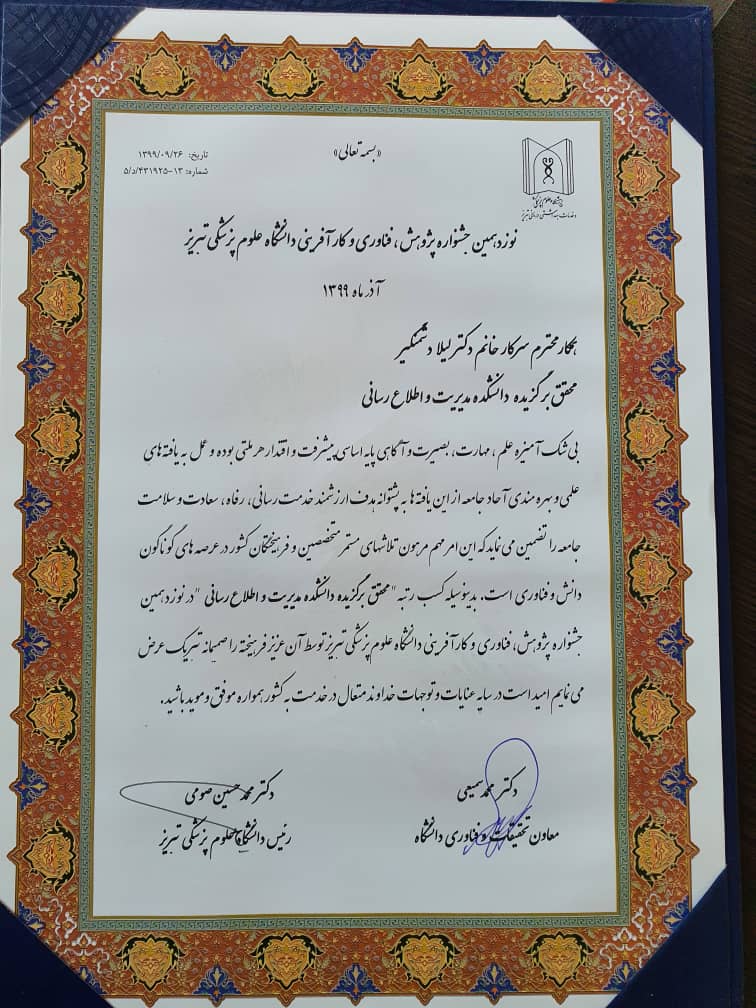 «بسمه تعالی»
تاریخ: ۱۳۹۹/۰۹/۲۶
شماره: ۱۳-۵/د/۴۳۱۹۲۵
دانشگاه علوم پزشکی
و خدمات بهداشتی درمانی تبریز
نوزدهمین جشنواره پژوهش، فناوری و کارآفرینی دانشگاه علوم پزشکی تبریز
آذر ماه ۱۳۹۹
همکار محترم سرکار خانم دکتر لیلا دشمنگیر
محقق برگزیده دانشکده مدیریت و اطلاع رسانی
بی شک آمیزه علم ، مهارت، بصیرت و آگاهی پایه اساسی پیشرفت و اقتدار هر ملتی بوده و عمل به یافته های
علمی و بهره مندی آحاد جامعه از این یافته ها به پشتوانه هدف ارزشمند خدمت رسانی، رفاه ، سعادت و سلامت
جامعه را تضمین می نماید که این امر مهم مرهون تلاشهای مستمر متخصصین و فرهیختگان کشور در عرصه های گوناگون
دانش و فناوری است. بدینوسیله کسب رتبه "محقق برگزیده دانشکده مدیریت و اطلاع رسانی " در نوزدهمین
جشنواره پژوهش، فناوری و کارآفرینی دانشگاه علوم پزشکی تبریز توسط آن عزیز فرهیخته را صمیمانه تبریک عرض
می نمایم امید است در سایه عنایات و توجهات خداوند متعال در خدمت به کشور همواره موفق و موید باشید.
دکتر محمد سمیعی
معاون تحقیقات و فناوری دانشگاه
دکتر محمد حسین صومی
رئیس دانشگاه علوم پزشکی تبریز